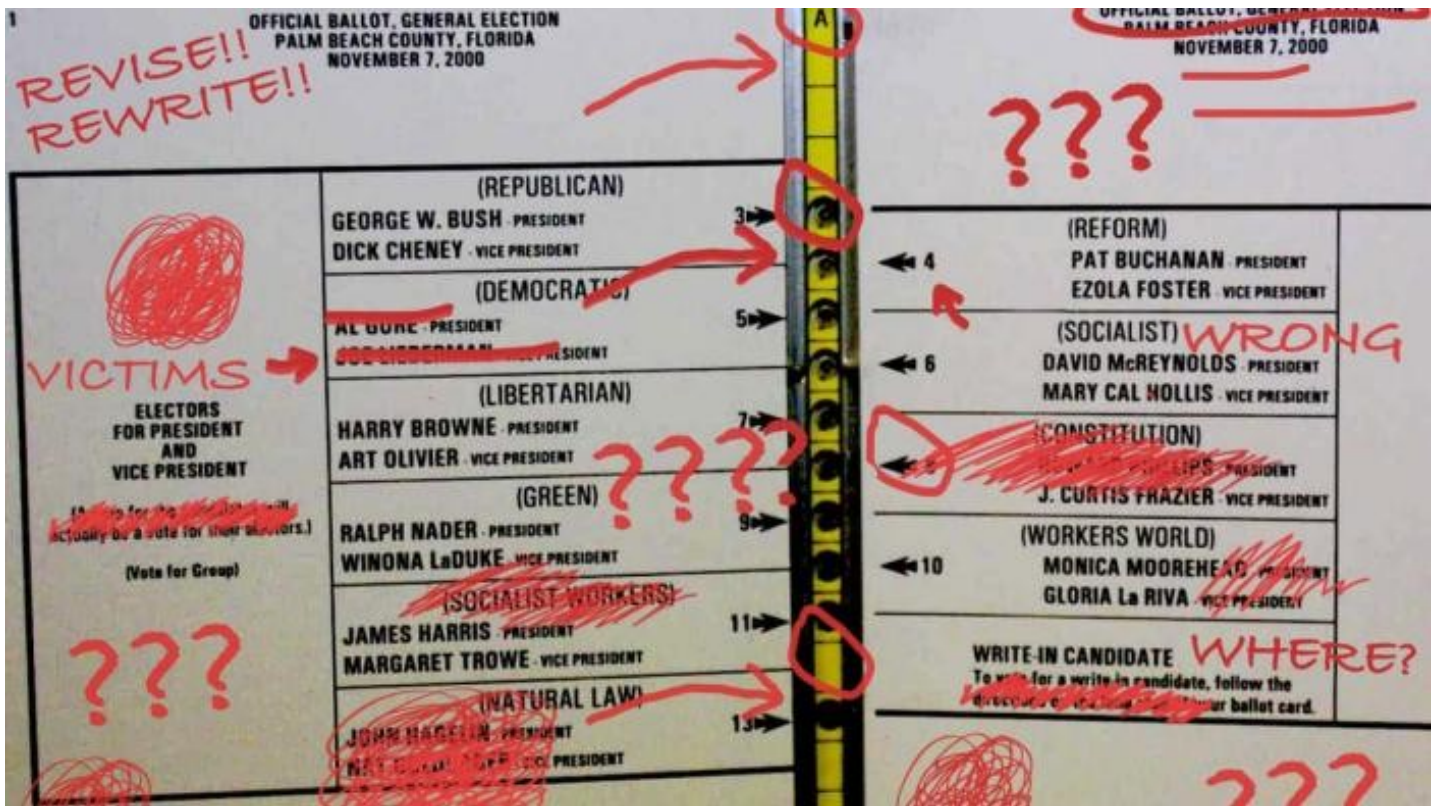 1
OFFICIAL BALLOT, GENERAL ELECTION
PALM BEACH COUNTY, FLORIDA
NOVEMBER 7, 2000
REVISE!!
REWRITE!!
A
OFFICIAL BALLOT, GENERAL ELECTION
PALM BEACH COUNTY, FLORIDA
NOVEMBER 7, 2000
???
VICTIMS
ELECTORS
FOR PRESIDENT
AND
VICE PRESIDENT
actually be a vote for their electors.)
(Vote for Group)
???
(REPUBLICAN)
GEORGE W. BUSH - PRESIDENT
3
DICK CHENEY - VICE PRESIDENT
(DEMOCRATIC)
AL GORE - PRESIDENT
5
JOE LIEBERMAN - VICE PRESIDENT
(LIBERTARIAN)
HARRY BROWNE - PRESIDENT
7
ART OLIVIER - VICE PRESIDENT
????
(GREEN)
RALPH NADER - PRESIDENT
9
WINONA LaDUKE - VICE PRESIDENT
(SOCIALIST WORKERS)
JAMES HARRIS - PRESIDENT
11
MARGARET TROWE - VICE PRESIDENT
(NATURAL LAW)
JOHN HAGELIN - PRESIDENT
13
VICE PRESIDENT
(REFORM)
4
PAT BUCHANAN - PRESIDENT
EZOLA FOSTER - VICE PRESIDENT
(SOCIALIST)
WRONG
6
DAVID McREYNOLDS - PRESIDENT
MARY CAL HOLLIS - VICE PRESIDENT
(CONSTITUTION)
8
PHILLIPS - PRESIDENT
J. CURTIS FRAZIER - VICE PRESIDENT
(WORKERS WORLD)
10
MONICA MOOREHEAD - PRESIDENT
GLORIA La RIVA - VICE PRESIDENT
WRITE-IN CANDIDATE
WHERE?
To vote for a write-in candidate, follow the
your ballot card.
???